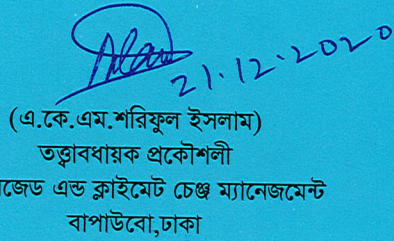 21.12.2020
(এ.কে.এম.শরিফুল ইসলাম)
তত্ত্বাবধায়ক প্রকৌশলী
জেড এন্ড ক্লাইমেট চেঞ্জ ম্যানেজমেন্ট
বাপাউবো,ঢাকা